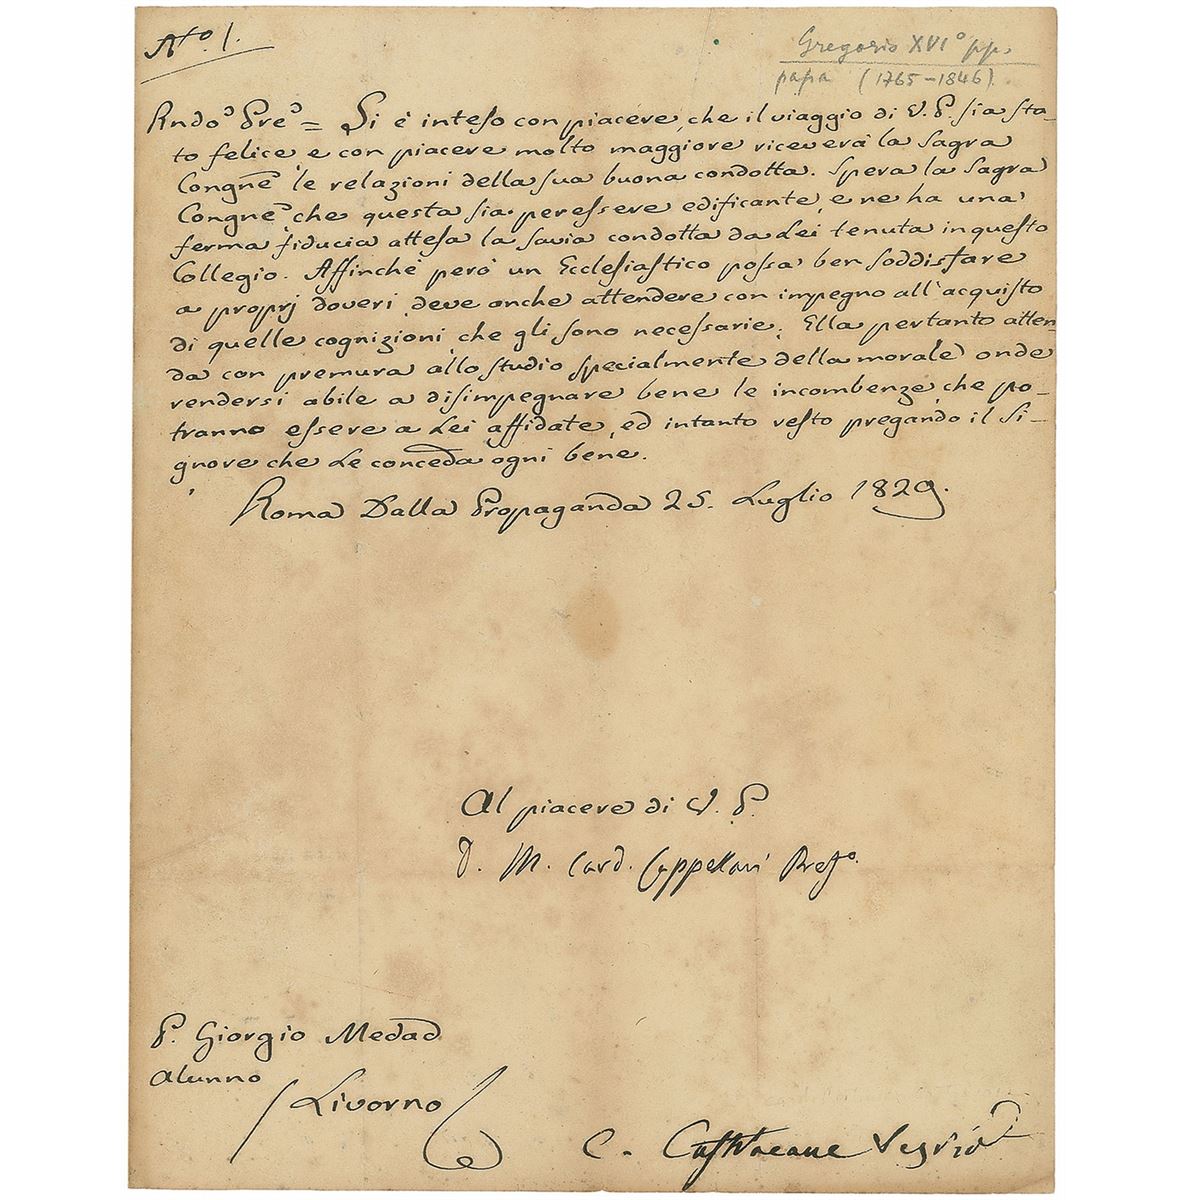 Ato. 1.
Gregorio XVI° pp.
papa (1765-1846)
Rndo Pre = Si è inteso con piacere, che il viaggio di V. P. sia sta-
to felice, e con piacere molto maggiore riceverà la Sagra
Congne le relazioni della sua buona condotta. Spera la Sagra
Congne, che questa sia per essere edificante, e ne ha una
ferma fiducia attesa la savia condotta da Lei tenuta in questo
Collegio. Affinchè però un Ecclesiastico possa ben soddisfare
a proprj doveri, deve anche attendere con impegno all'acquisto
di quelle cognizioni, che gli sono necessarie; Ella pertanto atten
da con premura allo studio specialmente della morale, onde
rendersi abile a disimpegnare bene le incombenze, che po-
tranno essere a Lei affidate, ed intanto resto pregando il Si-
gnore che Le conceda ogni bene.
Roma Dalla Propaganda 25. Luglio 1829.
Al piacere di V. P.
D. M. Card. Cappellari Prefo.
P. Giorgio Medad
Alunno
Livorno
C. Castracane Segrio